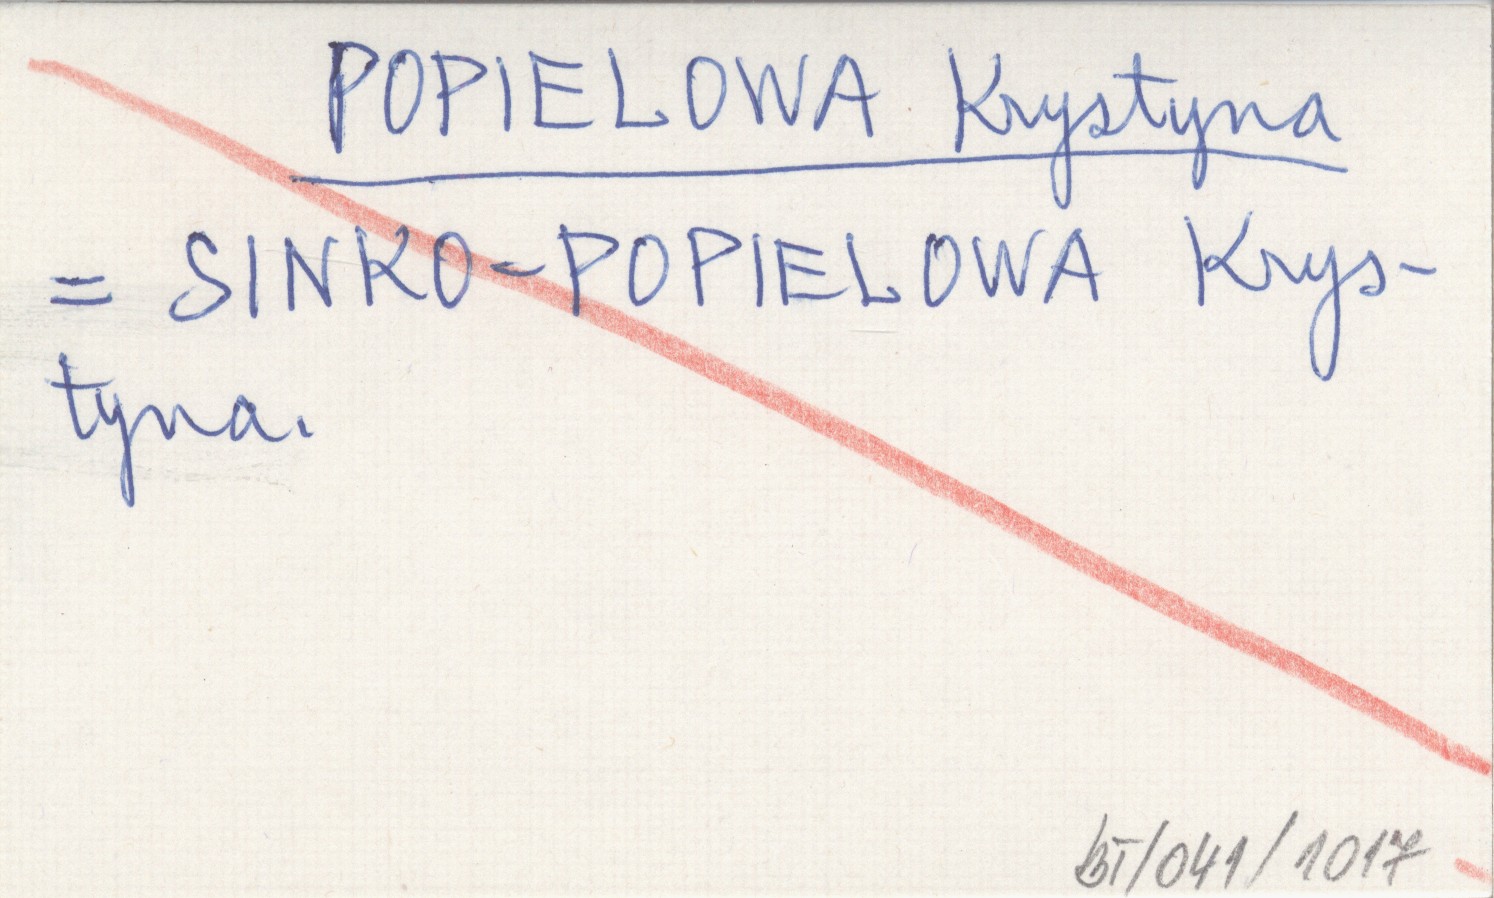 POPIELOWA Krystyna
= SINKO-POPIELOWA Krys-
tyna.
bI/041/1017